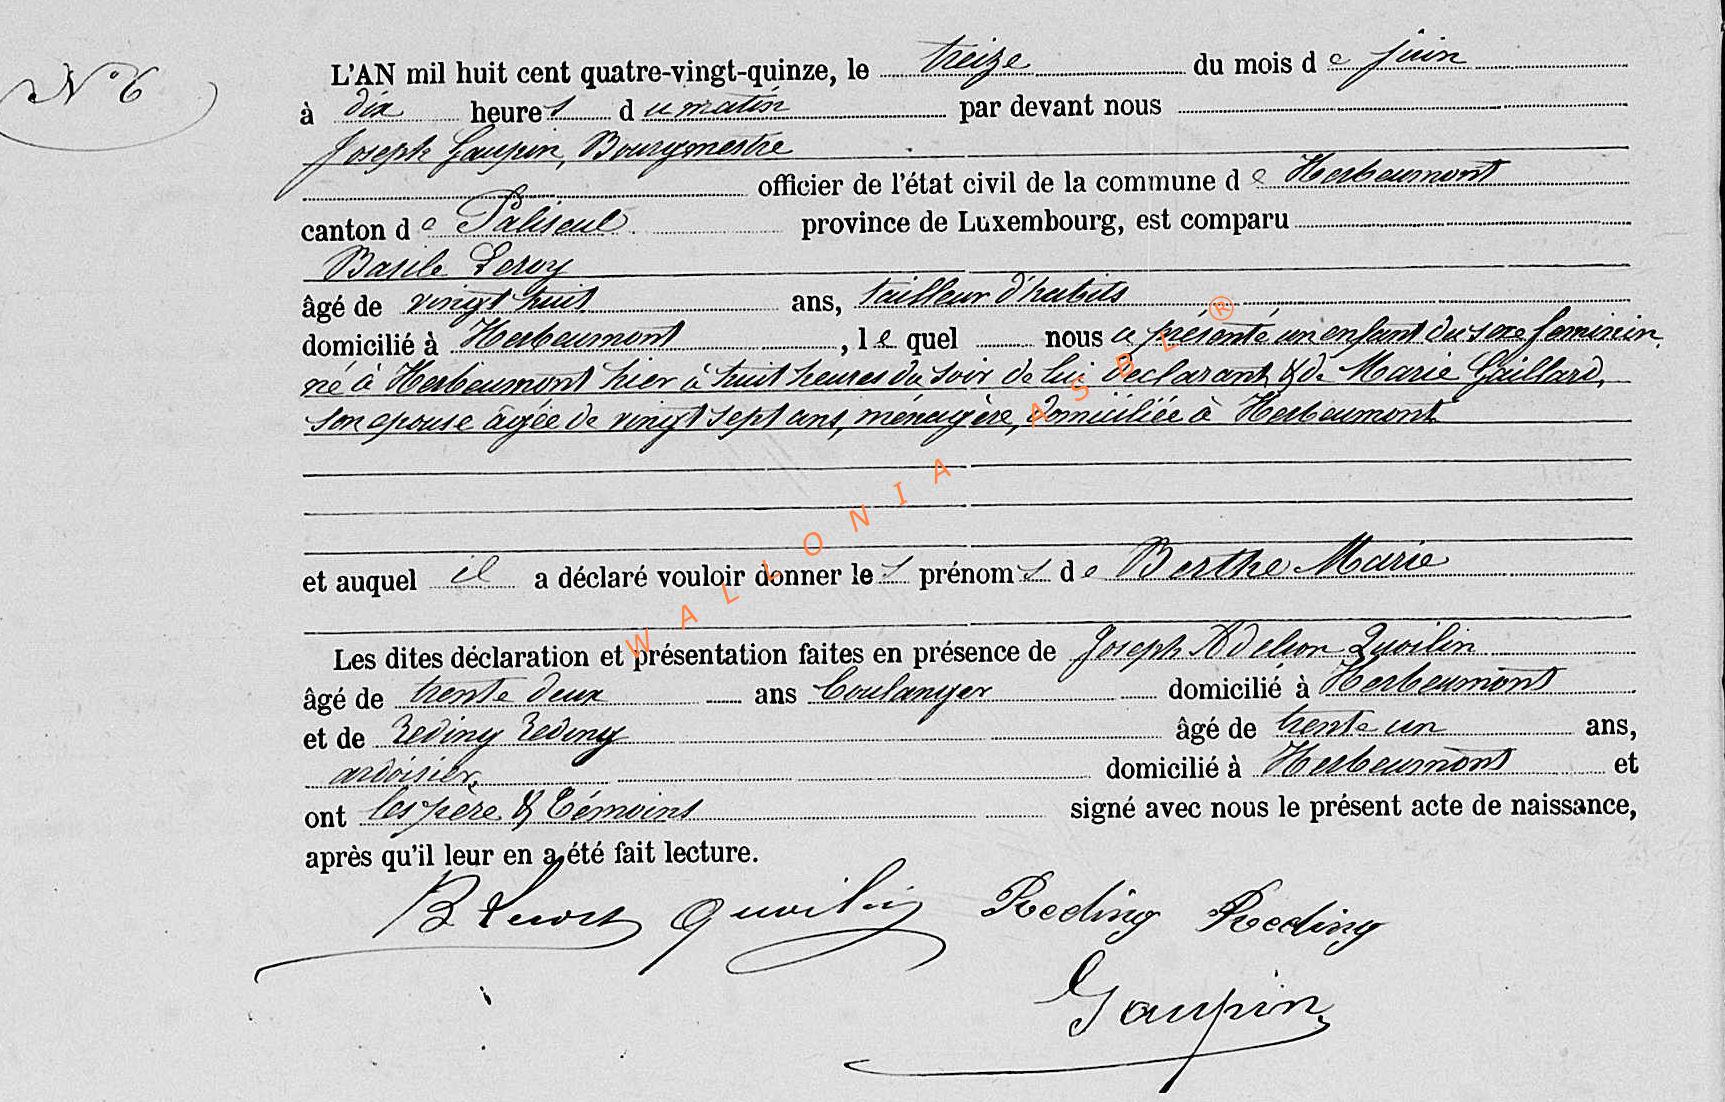 N° 6
L'AN mil huit cent quatre-vingt-quinze, le treize du mois de juin
à dix heures du matin par devant nous
Joseph Gaupin, Bourgmestre
officier de l'état civil de la commune de Herbeumont
canton de Paliseul province de Luxembourg, est comparu
Basile Leroy
âgé de vingt huit ans, tailleur d'habits
domicilié à Herbeumont, lequel nous a présenté un enfant du sexe feminin
né à Herbeumont hier à huit heures du soir de lui déclarant & de Marie Gaillard,
son epouse âgée de vingt sept ans, ménagère, domiciliée à Herbeumont
et auquel il a déclaré vouloir donner les prénoms de Berthe Marie
Les dites déclaration et présentation faites en présence de Joseph Adelson Quoilin
âgé de trente deux ans boulanger domicilié à Herbeumont
et de Reding Reding âgé de trente un ans,
ardoisier, domicilié à Herbeumont et
ont les père & témoins signé avec nous le présent acte de naissance,
après qu'il leur en a été fait lecture.
B Quoilin Reding Reding
Gaupin
WALLONIA ASBL ®